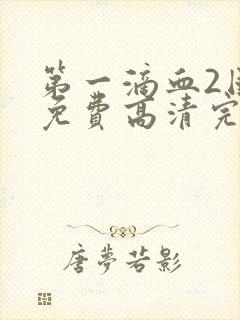 第一滴血2
免费高清完
唐夢若影